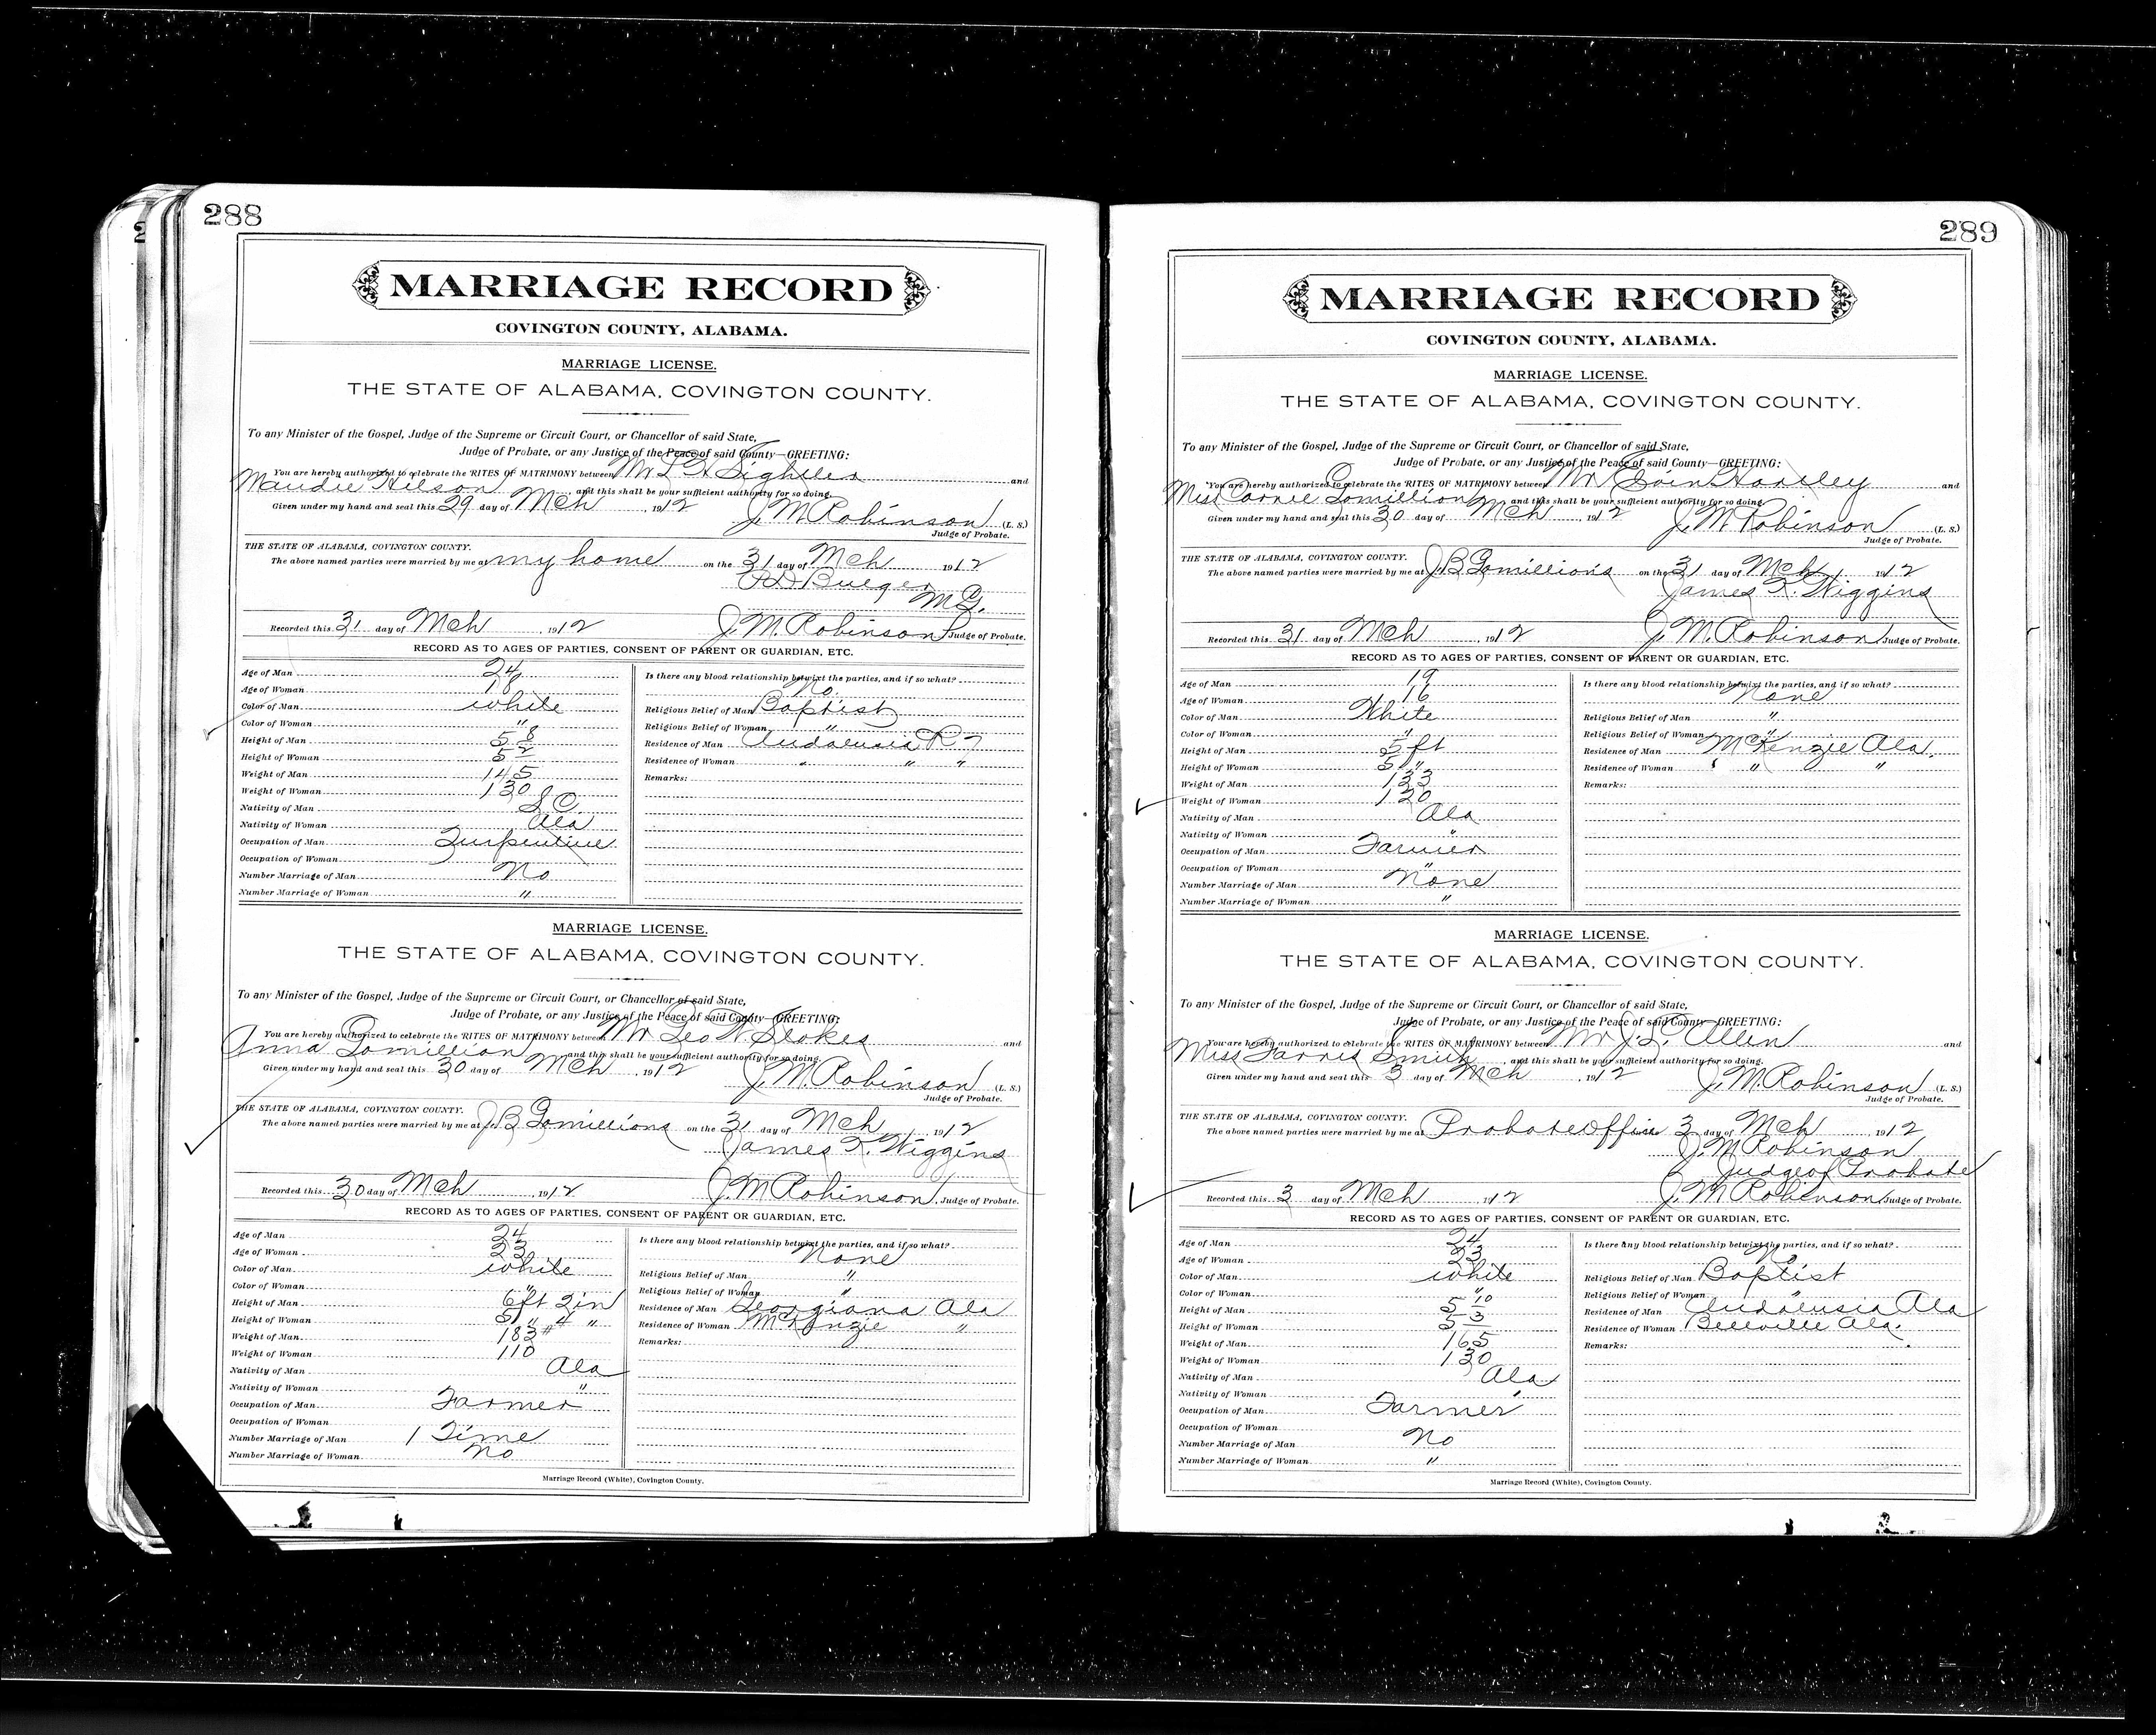 288
MARRIAGE RECORD
COVINGTON COUNTY, ALABAMA.
MARRIAGE LICENSE.
THE STATE OF ALABAMA, COVINGTON COUNTY.
To any Minister of the Gospel, Judge of the Supreme or Circuit Court, or Chancellor of said State,
Judge of Probate, or any Justice of the Peace of said County—GREETING:
You are hereby authorized to celebrate the RITES OF MATRIMONY between Mr L H Sightler and
Maudie Hilson, and this shall be your sufficient authority for so doing.
Given under my hand and seal this 29 day of Mch, 1912 J. M Robinson (L. S.)
Judge of Probate.
THE STATE OF ALABAMA, COVINGTON COUNTY.
The above named parties were married by me at my home on the 31 day of Mch 1912
M.G.
Recorded this 31 day of Mch, 1912 J. M. Robinson Judge of Probate.
RECORD AS TO AGES OF PARTIES, CONSENT OF PARENT OR GUARDIAN, ETC.
Age of Man 24
Age of Woman 18
Color of Man white
Color of Woman "
Height of Man 5 8
Height of Woman 5 2
Weight of Man 145
Weight of Woman 130
Nativity of Man S C
Nativity of Woman Ala
Occupation of Man Turpentine
Occupation of Woman
Number Marriage of Man No
Number Marriage of Woman "
Is there any blood relationship betwixt the parties, and if so what?
No.
Religious Belief of Man Baptist
Religious Belief of Woman "
Residence of Man Andalusia R 7
Residence of Woman " " "
Remarks:
MARRIAGE LICENSE.
THE STATE OF ALABAMA, COVINGTON COUNTY.
To any Minister of the Gospel, Judge of the Supreme or Circuit Court, or Chancellor of said State,
Judge of Probate, or any Justice of the Peace of said County—GREETING:
You are hereby authorized to celebrate the RITES OF MATRIMONY between Mr Leo W Stokes and
Anna Gomillion, and this shall be your sufficient authority for so doing.
Given under my hand and seal this 30 day of Mch, 1912 J. M. Robinson (L. S.)
Judge of Probate.
THE STATE OF ALABAMA, COVINGTON COUNTY.
The above named parties were married by me at J B Gomillions on the 31 day of Mch, 1912
James T. Wiggins
Recorded this 30 day of Mch, 1912 J. M Robinson, Judge of Probate.
RECORD AS TO AGES OF PARTIES, CONSENT OF PARENT OR GUARDIAN, ETC.
Age of Man 24
Age of Woman 23
Color of Man white
Color of Woman "
Height of Man 6ft 2in
Height of Woman 5 " 4 "
Weight of Man 183#
Weight of Woman 110
Nativity of Man Ala
Nativity of Woman "
Occupation of Man Farmer
Occupation of Woman
Number Marriage of Man 1 Time
Number Marriage of Woman No
Is there any blood relationship betwixt the parties, and if so what?
None
Religious Belief of Man "
Religious Belief of Woman "
Residence of Man Georgiana Ala
Residence of Woman McKenzie "
Remarks:
Marriage Record (White), Covington County.
289
MARRIAGE RECORD
COVINGTON COUNTY, ALABAMA.
MARRIAGE LICENSE.
THE STATE OF ALABAMA, COVINGTON COUNTY.
To any Minister of the Gospel, Judge of the Supreme or Circuit Court, or Chancellor of said State,
Judge of Probate, or any Justice of the Peace of said County—GREETING:
You are hereby authorized to celebrate the RITES OF MATRIMONY between Mr Hartley and
Miss Carrie Gomillion, and this shall be your sufficient authority for so doing.
Given under my hand and seal this 30 day of Mch, 1912 J. M. Robinson (L. S.)
Judge of Probate.
THE STATE OF ALABAMA, COVINGTON COUNTY.
The above named parties were married by me at J B Gomillions on the 31 day of Mch, 1912
James T. Wiggins
Recorded this 31 day of Mch, 1912 J. M. Robinson Judge of Probate.
RECORD AS TO AGES OF PARTIES, CONSENT OF PARENT OR GUARDIAN, ETC.
Age of Man 19
Age of Woman 16
Color of Man White
Color of Woman "
Height of Man 5 ft
Height of Woman 5 "
Weight of Man 133
Weight of Woman 120
Nativity of Man Ala
Nativity of Woman "
Occupation of Man Farmer
Occupation of Woman "
Number Marriage of Man None
Number Marriage of Woman "
Is there any blood relationship betwixt the parties, and if so what?
None
Religious Belief of Man "
Religious Belief of Woman "
Residence of Man McKenzie Ala.
Residence of Woman " " "
Remarks:
MARRIAGE LICENSE.
THE STATE OF ALABAMA, COVINGTON COUNTY.
To any Minister of the Gospel, Judge of the Supreme or Circuit Court, or Chancellor of said State,
Judge of Probate, or any Justice of the Peace of said County—GREETING:
You are hereby authorized to celebrate the RITES OF MATRIMONY between Mr J. Allen and
Miss Farris Smith, and this shall be your sufficient authority for so doing.
Given under my hand and seal this 3 day of Mch, 1912 J. M. Robinson (L. S.)
Judge of Probate.
THE STATE OF ALABAMA, COVINGTON COUNTY.
The above named parties were married by me at Probate office 3 day of Mch, 1912
J. M Robinson
Judge of Probate
Recorded this 3 day of Mch 1912 J. M Robinson Judge of Probate.
RECORD AS TO AGES OF PARTIES, CONSENT OF PARENT OR GUARDIAN, ETC.
Age of Man 24
Age of Woman 23
Color of Man white
Color of Woman "
Height of Man 5 10
Height of Woman 5 3
Weight of Man 165
Weight of Woman 130
Nativity of Man Ala
Nativity of Woman "
Occupation of Man Farmer
Occupation of Woman
Number Marriage of Man No
Number Marriage of Woman "
Is there any blood relationship betwixt the parties, and if so what?
No
Religious Belief of Man Baptist
Religious Belief of Woman "
Residence of Man Andalusia Ala
Residence of Woman Beeville Ala.
Remarks:
Marriage Record (White), Covington County.